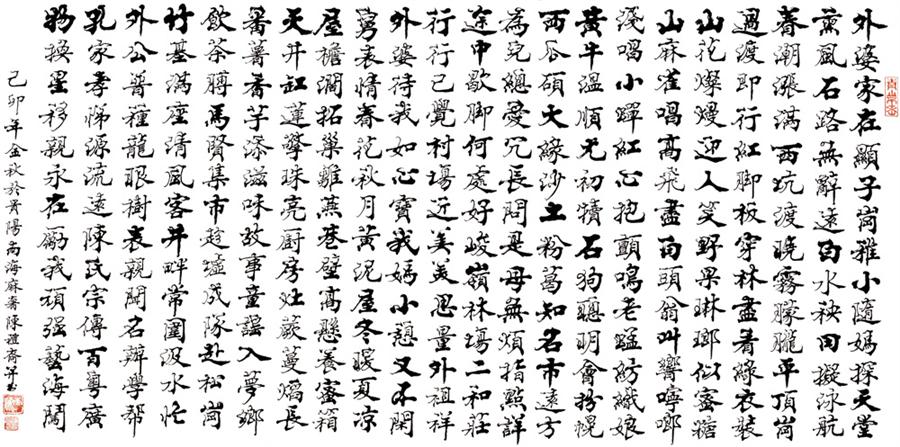 外婆家在顯子崗雅小隨媽探天堂
熏風石路無辭遠白水秧田擬泳航
春潮漲滿西坑渡晚霧朦朧平頂崗
過渡即行紅腳板穿林盡着綠衣裝
山花燦熳迎人笑野果琳瑯似蜜糖
山麻雀唱高飛盡白頭翁叫響嚀啷
淺唱小蟬紅心抱顫鳴老蜢紡織娘
黃牛溫順尤初犢石狗聰明會扮幌
西瓜碩大緣沙土粉葛知名市遠方
為兒總愛冗長問是母無煩指點詳
途中歇腳何處好峻嶺林塲二和莊
行行已覺村場近美美思量外祖祥
外婆待我如心寶我媽小憩又不閑
舅表情春花秋月黃泥屋冬暖夏涼
屋檐澗拓巢雛燕巷壁高懸養蜜箱
天井缸蓮擎珠亮厨房灶蕨蔓熖長
番薯香芋添滋味故事童謠入夢鄉
飲茶膞馬賢集市趁墟成隊赴松崗
竹基滿座清風客井畔常圍汲水忙
外公普種龍眼樹表親閗名辦學幫
乳家孝悌源流遠陳氏宗傳百粵廣
物換星移親永在勵我頑强藝海闖
己卯年金秋於貴陽尚海麻齋陳澧齋並書